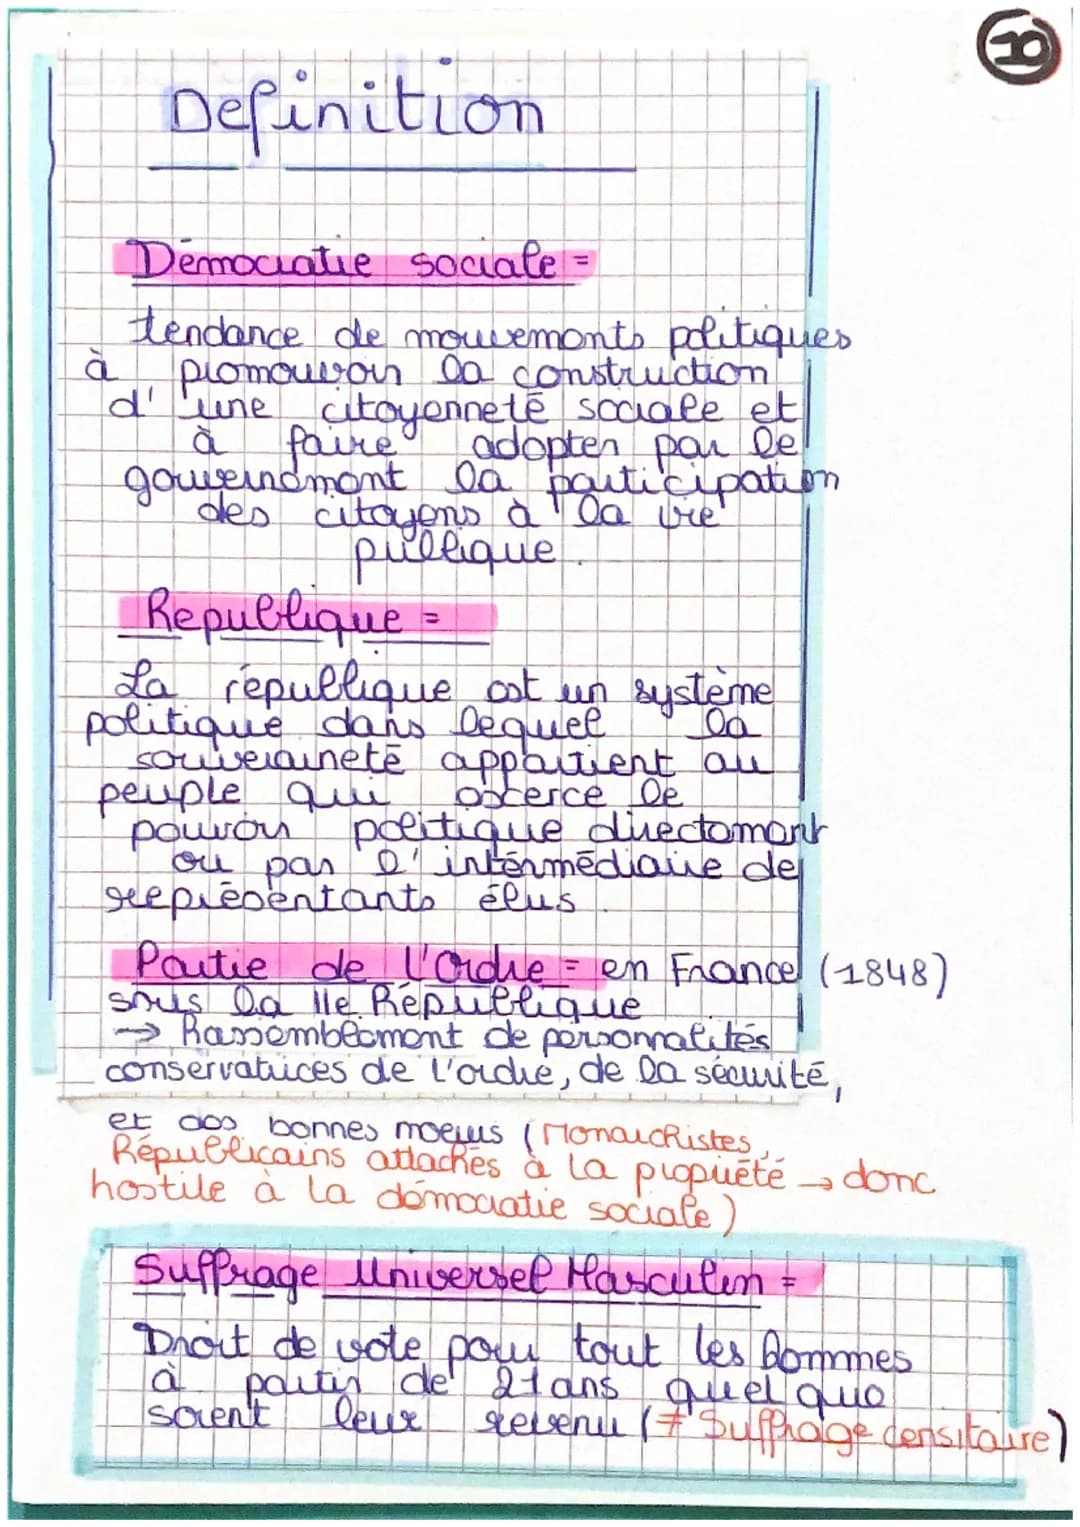 10
Definition
Démocratie sociale =
tendance de mouvements politiques
à promouvoir la construction
d'une citoyenneté sociale et
à faire adopter par le
gouvernement la participation
des citoyens à la vie
publique.
Republique =
La république est un système
politique dans lequel la
souveraineté appartient au
peuple qui exerce le
pouvoir politique directement
ou par l'intérmédiaire de
représentants élus.
Partie de l'Ordre = en France (1848)
sous la IIe République
→ Rassemblement de personnalités
conservatrices de l'ordre, de la sécurité,
et des bonnes moeurs (Monarchistes,
Républicains attachés à la propriété → donc
hostile à la démocratie sociale)
Suffrage Universel Masculin =
Droit de vote pour tout les hommes
à partir de 21 ans quel que
soient leur revenu (≠ Suffrage censitaire)